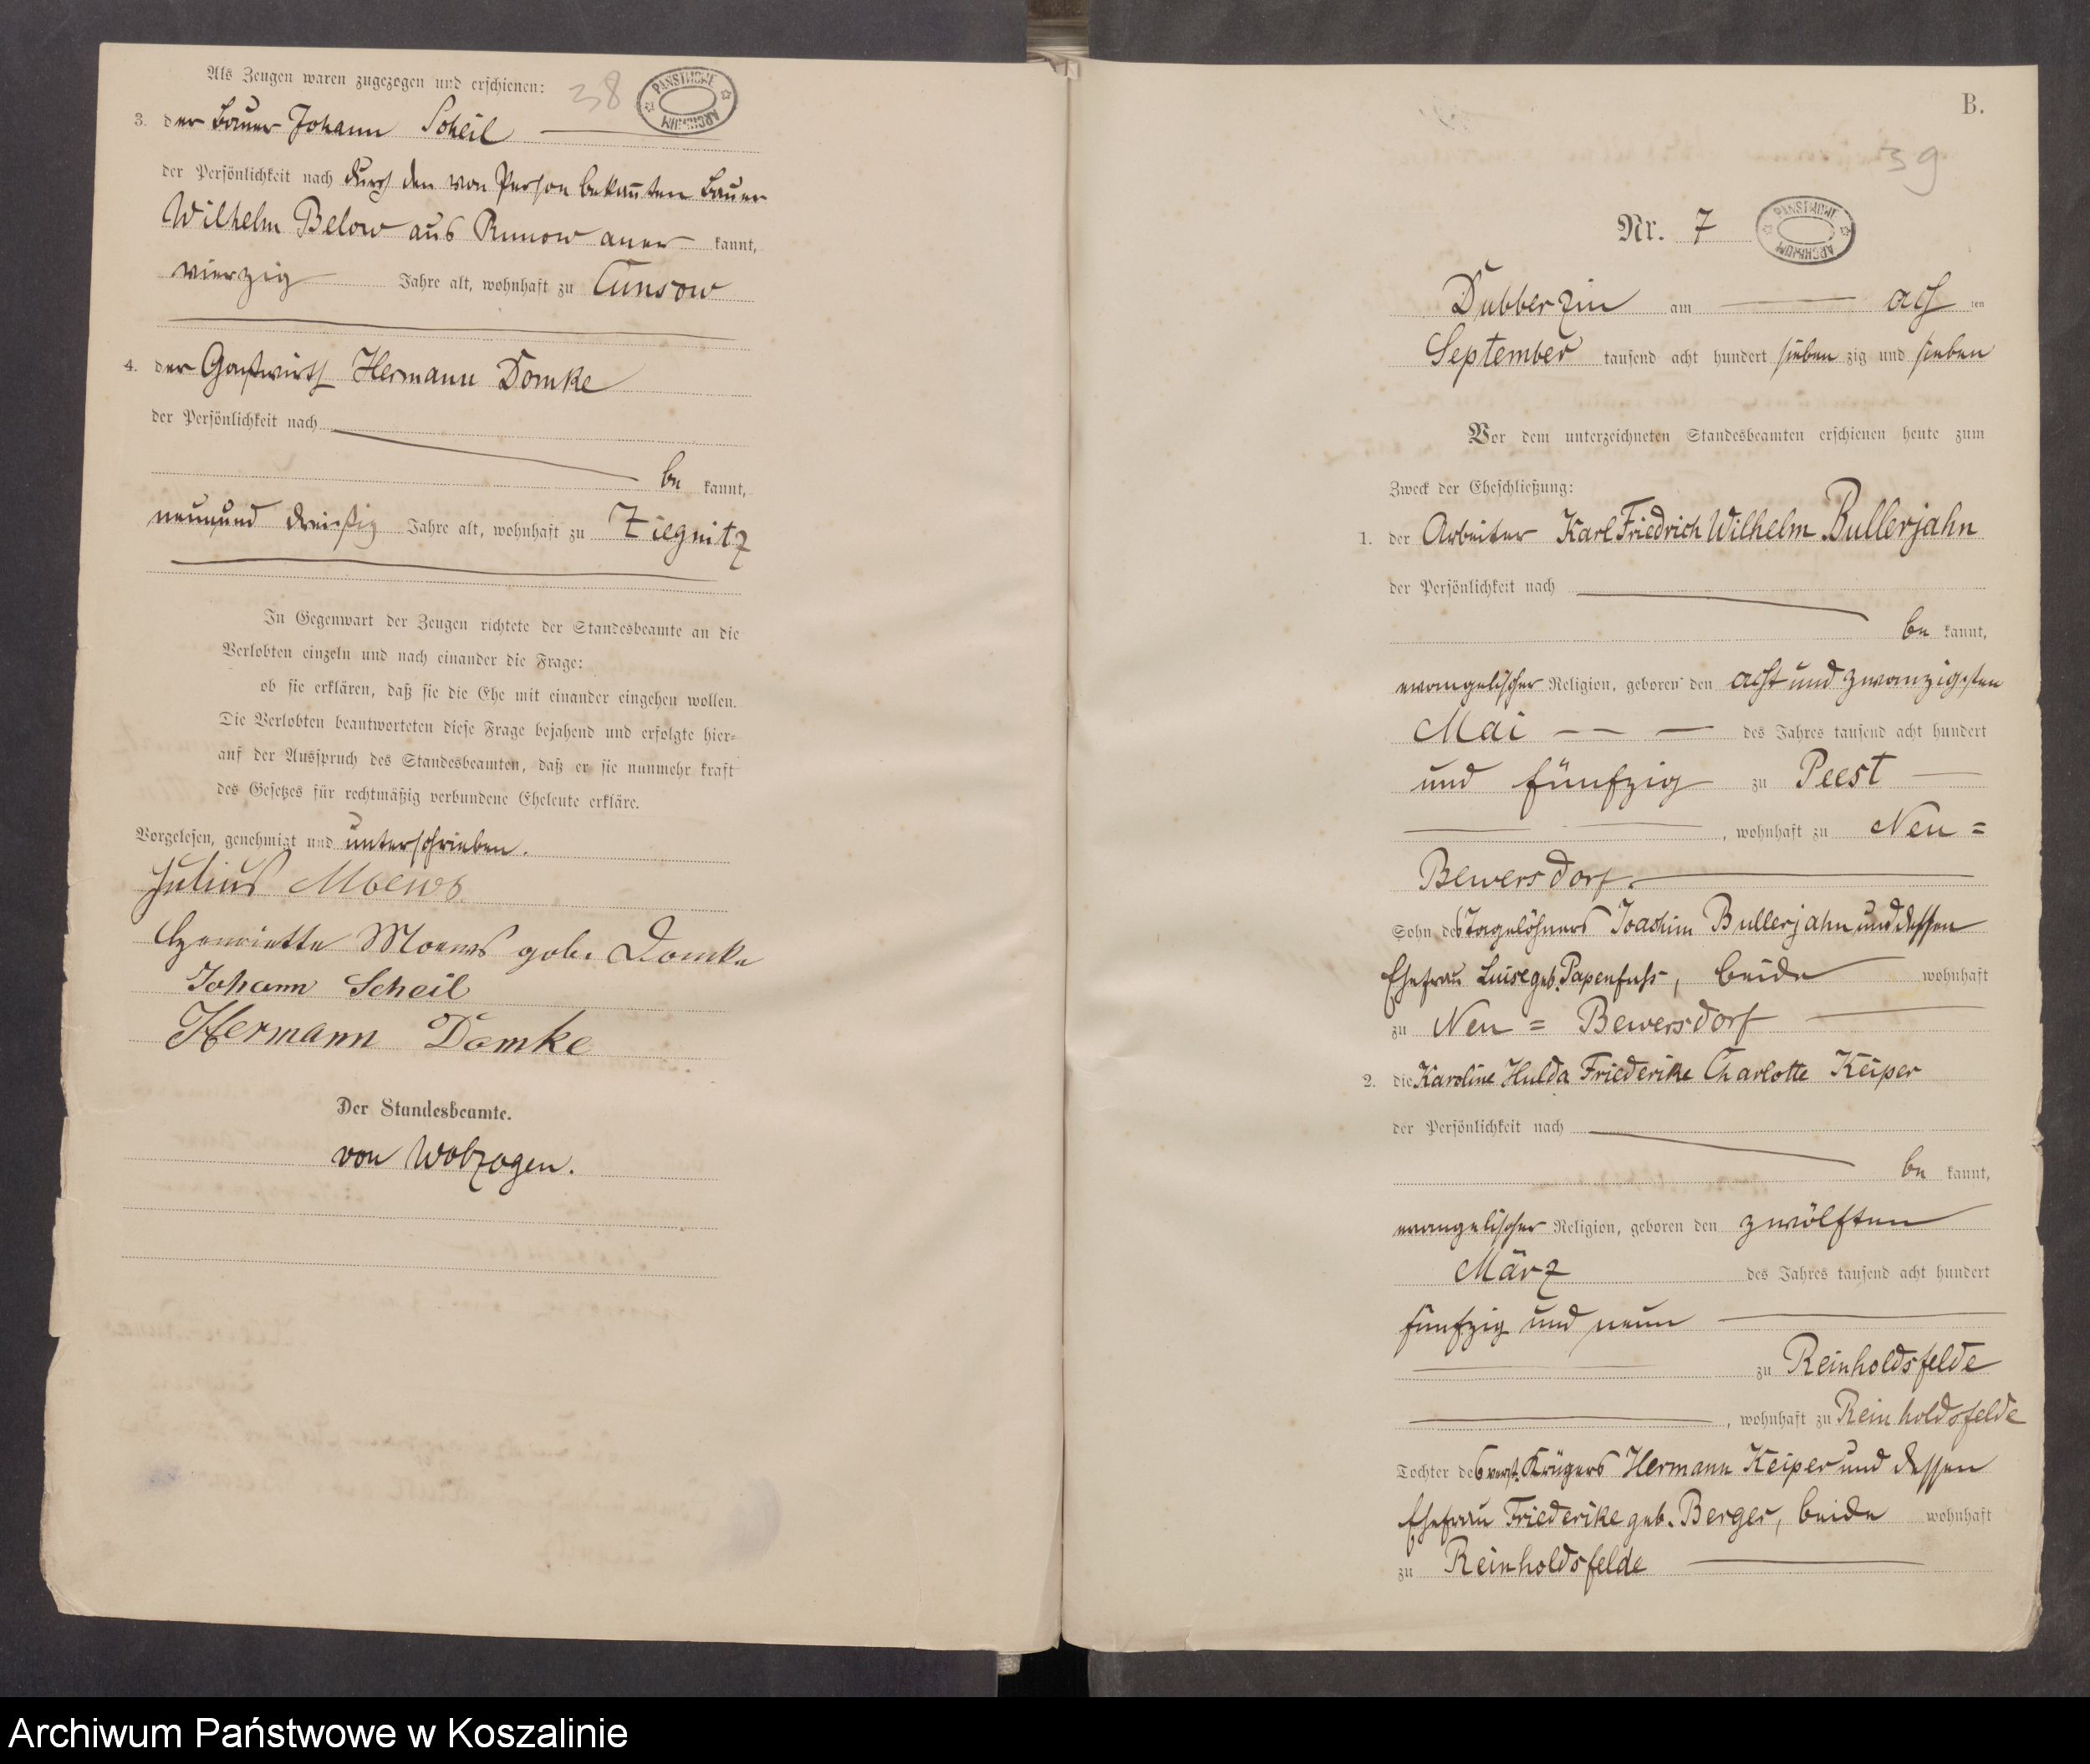 Als Zeugen waren zugezogen und erschienen:
38
PAŃSTWOWE ARCHIWUM
3. der Bauer Johann Scheil
der Persönlichkeit nach durch den von Person bekannten Bauer
Wilhelm Below aus Runow aner kannt,
vierzig Jahre alt, wohnhaft zu Cunsow
4. der Gastwirth Hermann Domke
der Persönlichkeit nach
be kannt,
neunund dreißig Jahre alt, wohnhaft zu Ziegnitz
In Gegenwart der Zeugen richtete der Standesbeamte an die
Verlobten einzeln und nach einander die Frage:
ob sie erklären, daß sie die Ehe mit einander eingehen wollen.
Die Verlobten beantworteten diese Frage bejahend und erfolgte hier-
auf der Ausspruch des Standesbeamten, daß er sie nunmehr kraft
des Gesetzes für rechtmäßig verbundene Eheleute erkläre.
Vorgelesen, genehmigt und unterschrieben.
Julius Moews
Henriette Moews geb. Domke
Johann Scheil
Hermann Domke
Der Standesbeamte.
von Wolzogen.
B.
39
Nr. 7
PAŃSTWOWE ARCHIWUM
Dubberzin am acht ten
September tausend acht hundert sieben zig und sieben
Vor dem unterzeichneten Standesbeamten erschienen heute zum
Zweck der Eheschließung:
1. der Arbeiter Karl Friedrich Wilhelm Bullerjahn
der Persönlichkeit nach
be kannt,
evangelischer Religion, geboren den acht und zwanzigsten
Mai des Jahres tausend acht hundert
und fünfzig zu Peest
, wohnhaft zu Neu=
Bewersdorf.
Sohn des Tagelöhners Joachim Bullerjahn und dessen
Ehefrau Luise geb. Papenfuß, beide wohnhaft
zu Neu=Bewersdorf
2. die Karoline Hulda Friederike Charlotte Keiper
der Persönlichkeit nach
be kannt,
evangelischer Religion, geboren den zwölften
März des Jahres tausend acht hundert
fünfzig und neun
zu Reinholdsfelde
, wohnhaft zu Reinholdsfelde
Tochter des verst. Krügers Hermann Keiper und dessen
Ehefrau Friederike geb. Berger, beide wohnhaft
zu Reinholdsfelde
Archiwum Państwowe w Koszalinie